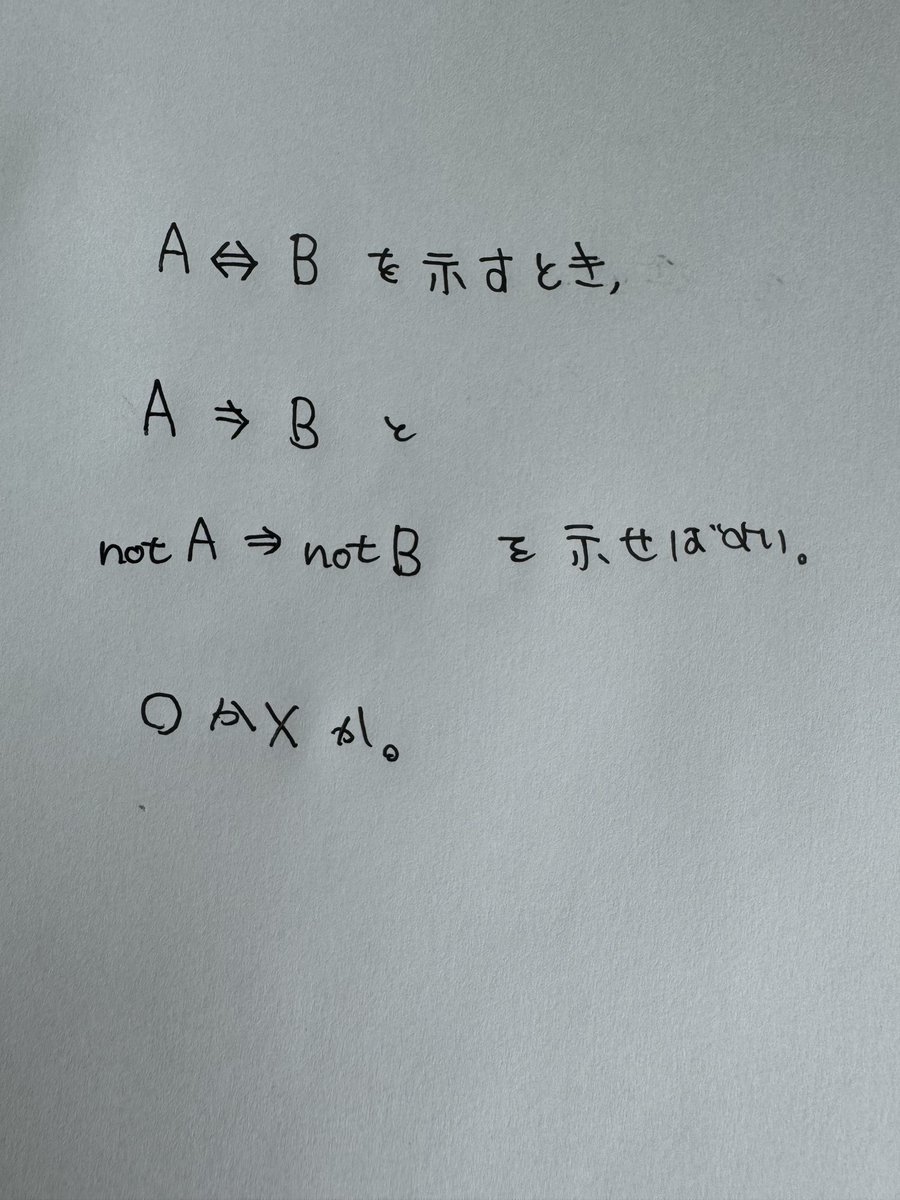 A ⇔ B を示すとき,
A ⇒ B と
not A ⇒ not B を示せばよい。
○ か X か。